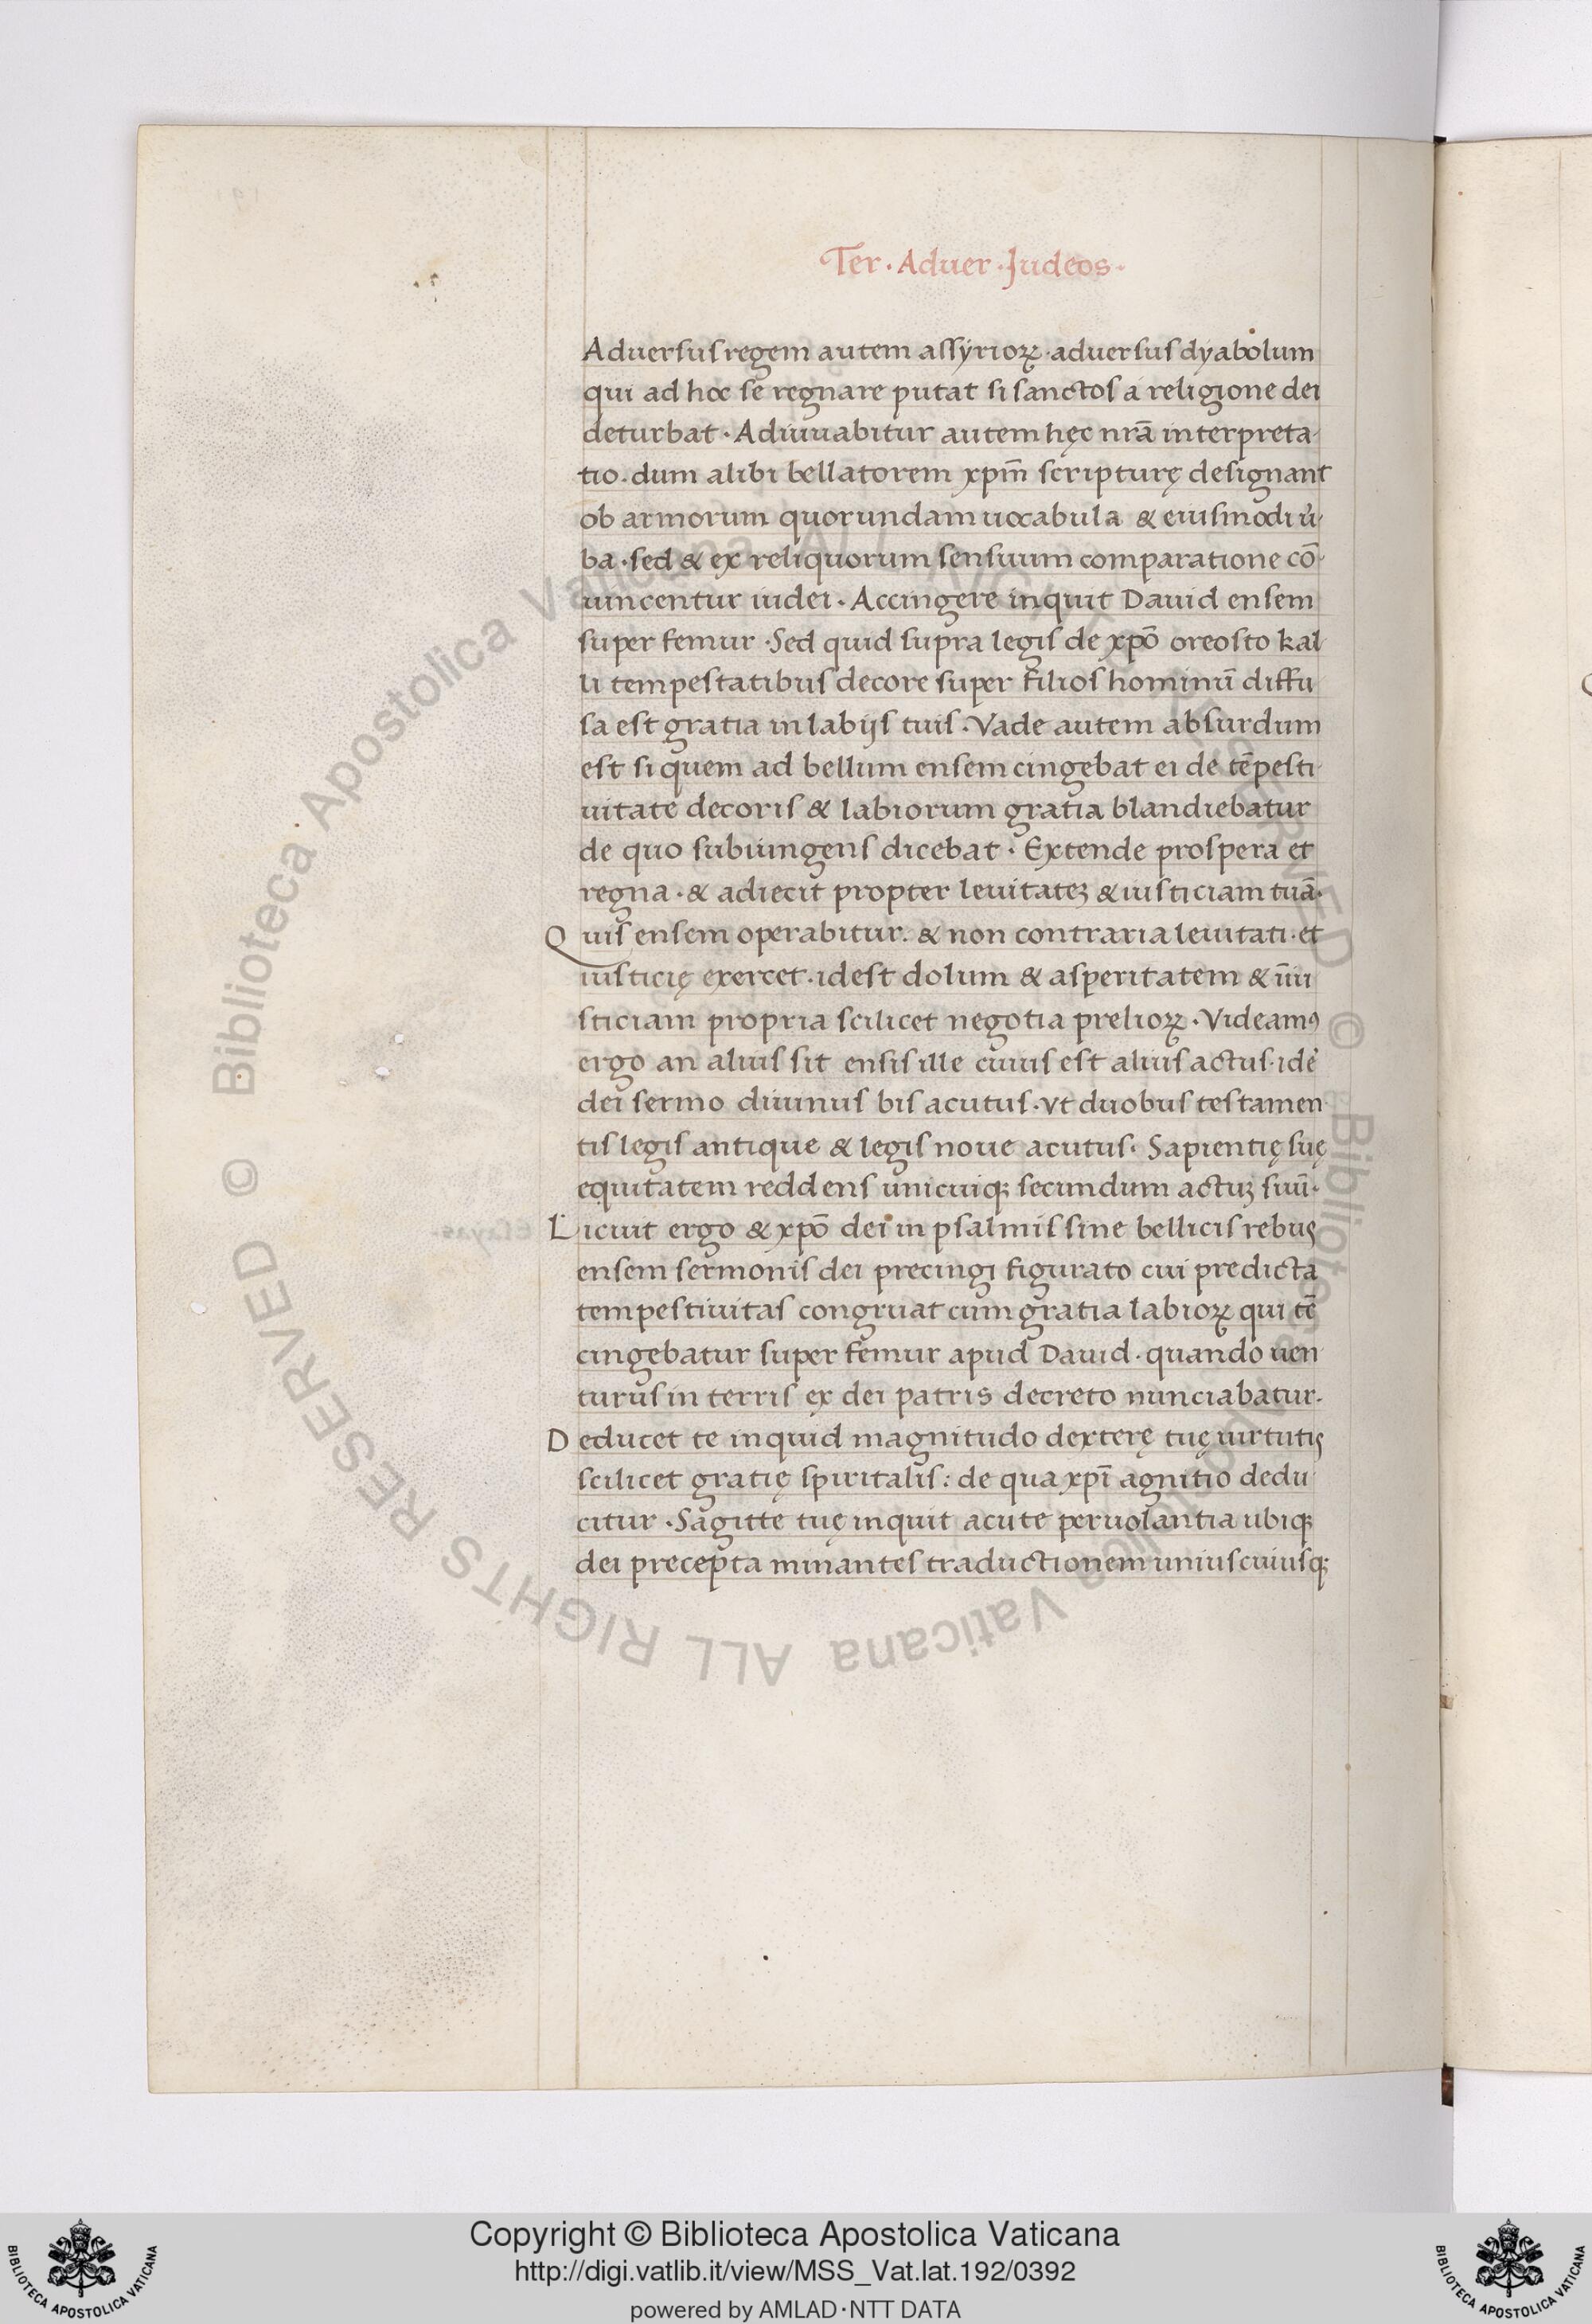 Ter · Aduer · Judeos ·
Aduersus regem autem assyrioꝝ · aduersus dyabolum
qui ad hoc se regnare putat si sanctos a religione dei
deturbat · Adiuuabitur autem hęc nrā interpreta-
tio · dum alibi bellatorem xpm̄ scripturę designant
ob armorum quorundam uocabula & eiusmodi u̓-
ba · sed & ex reliquorum sensuum comparatione cō-
uincentur iudei · Accingere inquit Dauid ensem
super femur · Sed quid supra legis de xpō oreosto kal
li tempestatibus decore super filios hominū diffu
sa est gratia in labijs tuis · Vade autem absurdum
est si quem ad bellum ensem cingebat ei de tēpesti-
uitate decoris & labiorum gratia blandiebatur
de quo subiungens dicebat · Extende prospera et
regna · & adiecit propter leuitateꝫ & iusticiam tuā ·
Quis ensem operabitur · & non contraria leuitati · et
iusticię exercet · idest dolum & asperitatem & īiu
sticiam propria scilicet negotia prelioꝝ · Videamꝰ
ergo an alius sit ensis ille cuius est alius actus · idē
dei sermo diuinus bis acutus · vt duobus testamen
tis legis antique & legis noue acutus · Sapientię suę
equitatem reddens unicuiqꝫ secundum actuꝫ suū ·
Licuit ergo & xpō dei in psalmis sine bellicis rebus
ensem sermonis dei precingi figurato cui predicta
tempestiuitas congruat cum gratia labioꝝ qui tē
cingebatur super femur apud Dauid · quando uen
turus in terris ex dei patris decreto nunciabatur ·
Deducet te inquid magnitudo dexterę tuę uirtutis
scilicet gratię spiritalis : de qua xpī agnitio dedu
citur · Sagitte tuę inquit acute peruolantia ubiqꝫ
dei precepta minantes traductionem uniuscuiusqꝫ
© Biblioteca Apostolica Vaticana ALL RIGHTS RESERVED © Biblioteca Apostolica Vaticana ALL RIGHTS RESERVED
Copyright © Biblioteca Apostolica Vaticana
http://digi.vatlib.it/view/MSS_Vat.lat.192/0392
powered by AMLAD·NTT DATA
BIBLIOTECA APOSTOLICA VATICANA
BIBLIOTECA APOSTOLICA VATICANA